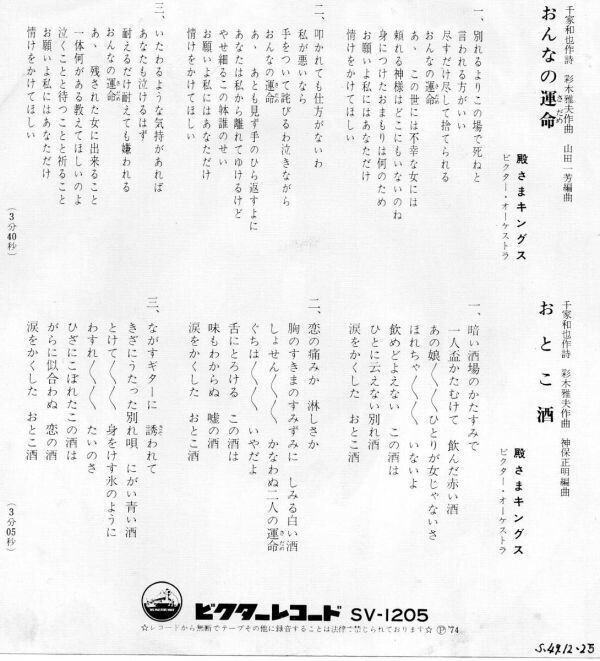 おんなの運命
さだめ
千家和也作詩 彩木雅夫作曲 山田一芳編曲
殿さまキングス
ビクター・オーケストラ
一、別れるよりこの場で死ねと
言われる方がいい
尽すだけ尽して捨てられる
おんなの運命
さだめ
あゝ この世には不幸な女には
頼れる神様はどこにもいないのね
身につけたおまもりは何のため
お願いよ私にはあなただけ
情けをかけてほしい
二、叩かれても仕方がないわ
私が悪いなら
手をついて詫びるわ泣きながら
おんなの運命
さだめ
あゝ あとも見ず手のひら返すよに
あなたは私から離れてゆけるけど
やせ細るこの躰誰のせい
お願いよ私にはあなただけ
情けをかけてほしい
三、いたわるような気持があれば
あなたも泣けるはず
耐えるだけ耐えても嫌われる
おんなの運命
さだめ
あゝ 残された女に出来ること
一体何がある教えてほしいのよ
泣くことと待つことと祈ること
お願いよ私にはあなただけ
情けをかけてほしい
(3分40秒)
おとこ酒
千家和也作詩 彩木雅夫作曲 神保正明編曲
殿さまキングス
ビクター・オーケストラ
一、暗い酒場のかたすみで
一人盃かたむけて 飲んだ赤い酒
あの娘〱〱ひとりが女じゃないさ
ほれちゃ〱〱 いないよ
飲めどよえない この酒は
ひとに云えない別れ酒
涙をかくした おとこ酒
二、恋の痛みか 淋しさか
胸のすきまのすみずみに しみる白い酒
しょせん〱〱 かなわぬ二人の運命
さだめ
ぐちは〱〱 いやだよ
舌にとろける この酒は
味もわからぬ 嘘の酒
涙をかくした おとこ酒
三、ながすギターに 誘われて
きざにうたった別れ唄 にがい青い酒
とけて〱〱 身をけす氷のように
わすれ〱〱 たいのさ
ひざにこぼれたこの酒は
がらに似合わぬ 恋の酒
涙をかくした おとこ酒
(3分05秒)
ビクターレコード SV-1205
☆レコードから無断でテープその他に録音することは法律で禁じられております☆ Ⓟ'74
S.49.12.25